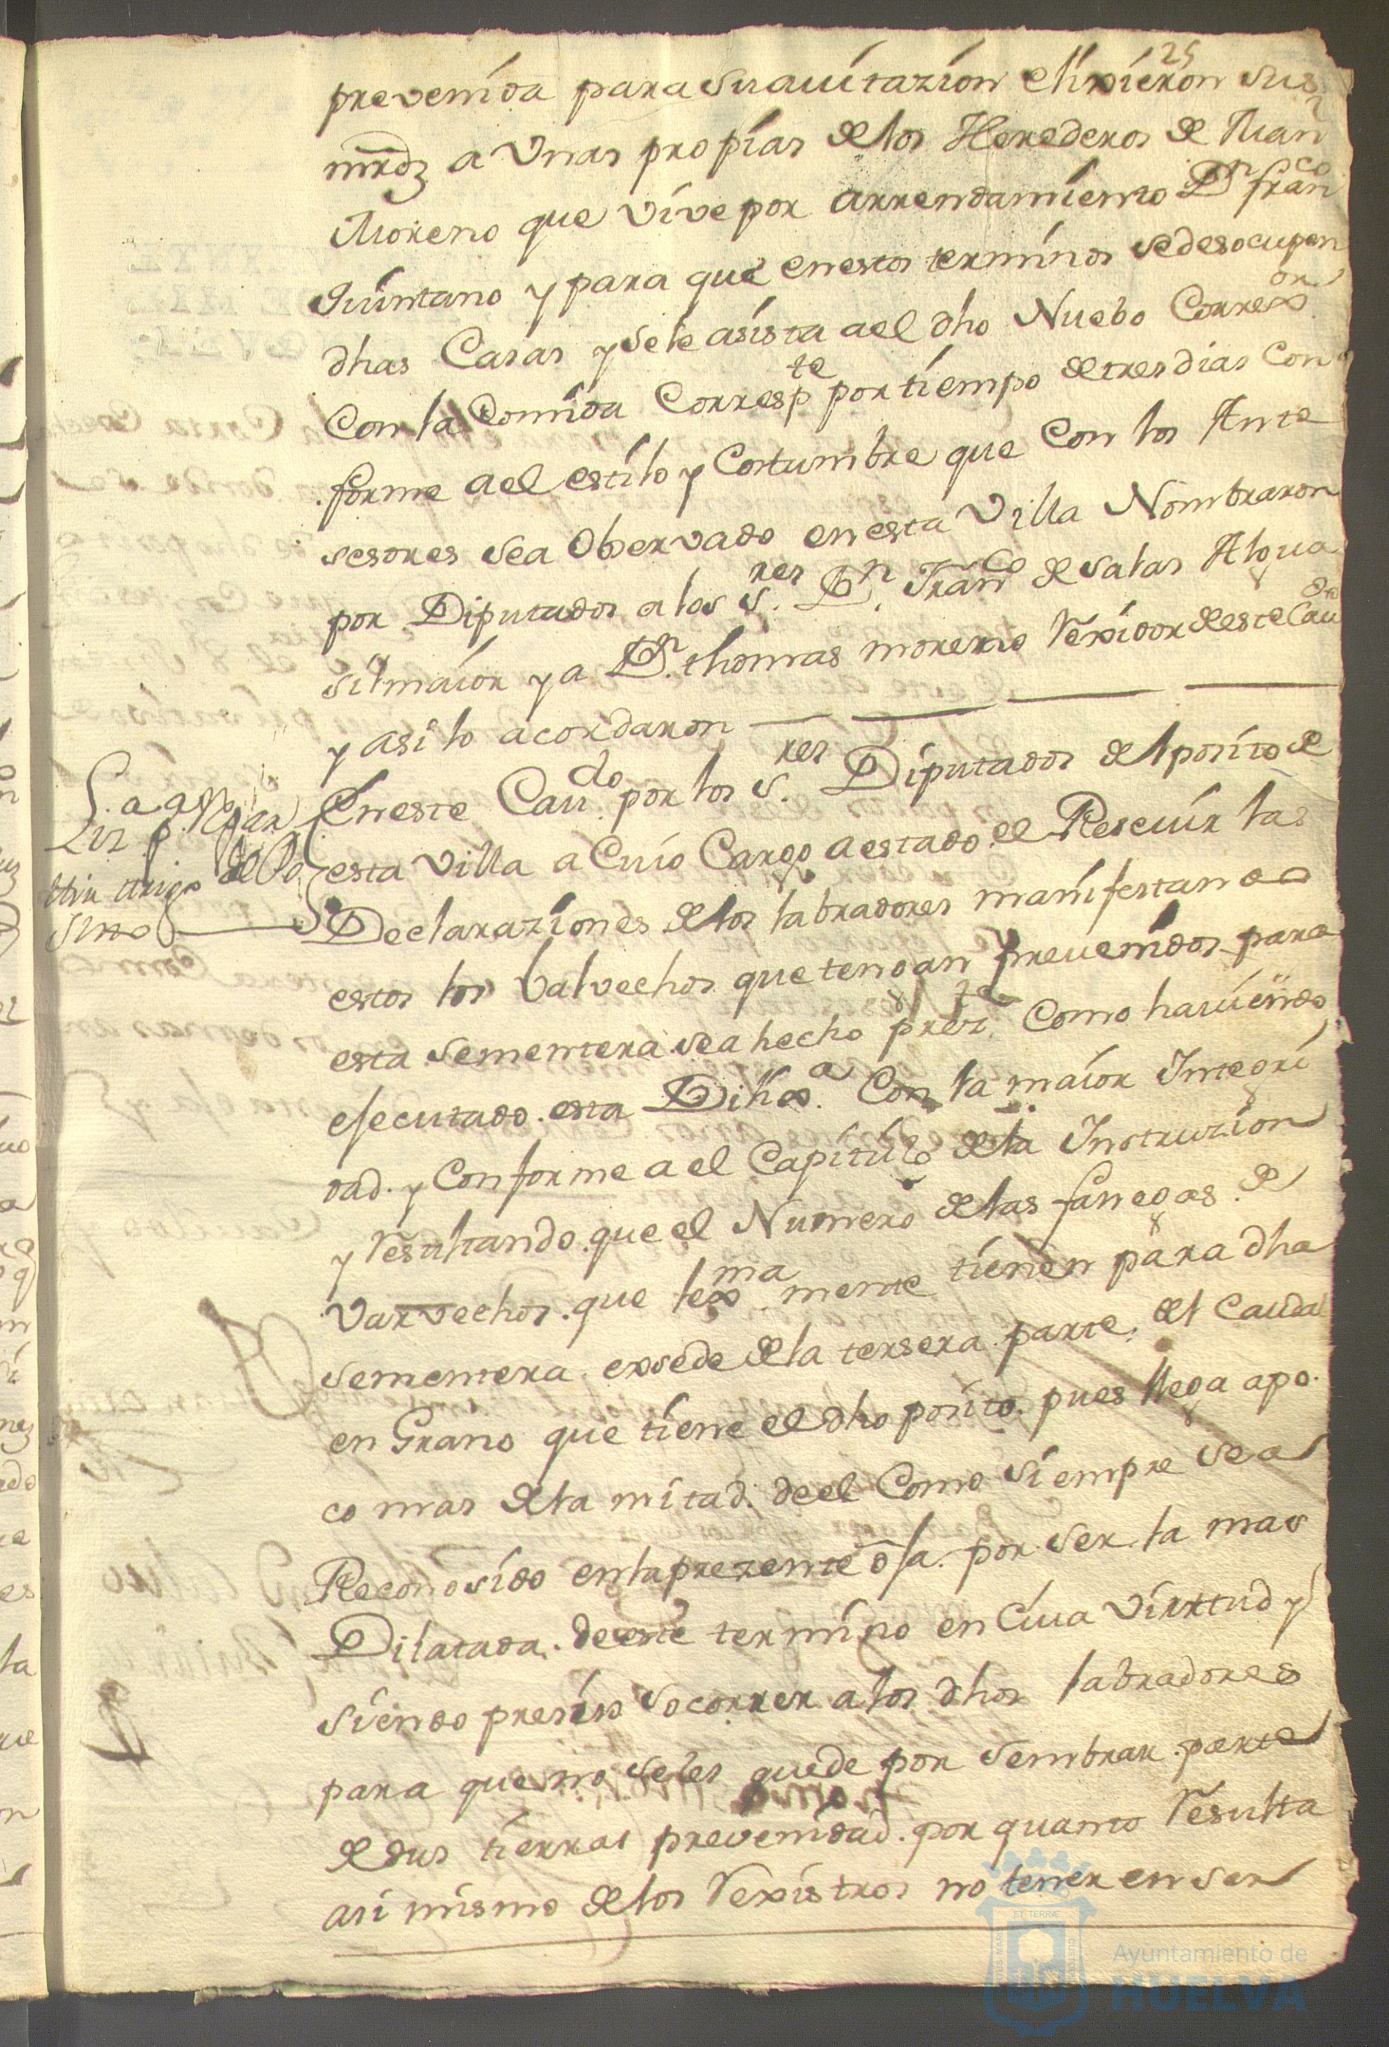 25
prevenida para su auitazion elixieron sus
mrdz a Vnas propias de los Herederos de Juan
Moreno que vive por arrendamiento Dn franco
quintano y para que en estos terminos se desocupen
dhas Casas y se le asista a el dho Nuebo Correxor
Con la Comida Correspte por tiempo de tres dias Con
forme a el estilo y Costumbre que Con los Ante
sesores sea Obserbado en esta Villa Nombraron
por Diputados a los Sres Dn Franco de Salas Algua
sil maior y a Dn thomas moreno Rexidor de este Caudo
y asi lo acordaron
En este Caudo por los Sres Diputados del posito de
esta Villa a Cuio Cargo a estado el Resevir las
Declaraziones de los labradores manifestando
estos los balvechos que tengan prevenidos para
esta sementera sea hecho prezte Como haviendo
ejecutado esta Dilixa Con la maior Integri
dad y Conforme a el Capitulo de la Instruzion
y Resultando que el Numero de las fanegas de
varvechos que lexmamente tienen para dha
sementera exsede de la tersera parte del Caudal
en Grano que tiene el dho posito pues llega apo
co mas de la mitad de el Como siempre sea
Reconosido en la prezente oja por ser la mas
Dilatada de este termino en Cuia virtud y
siendo presiso socorrer a los dhos labradores
para que no se les quede por sembrar parte
de sus tierras prevenidad por quanto Resulta
asi mismo de los Rexistros no tener en ser
sitto
Ayuntamiento de
HUELVA